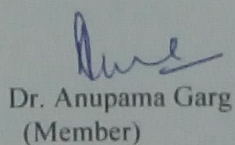 Dr. Anupama Garg
(Member)